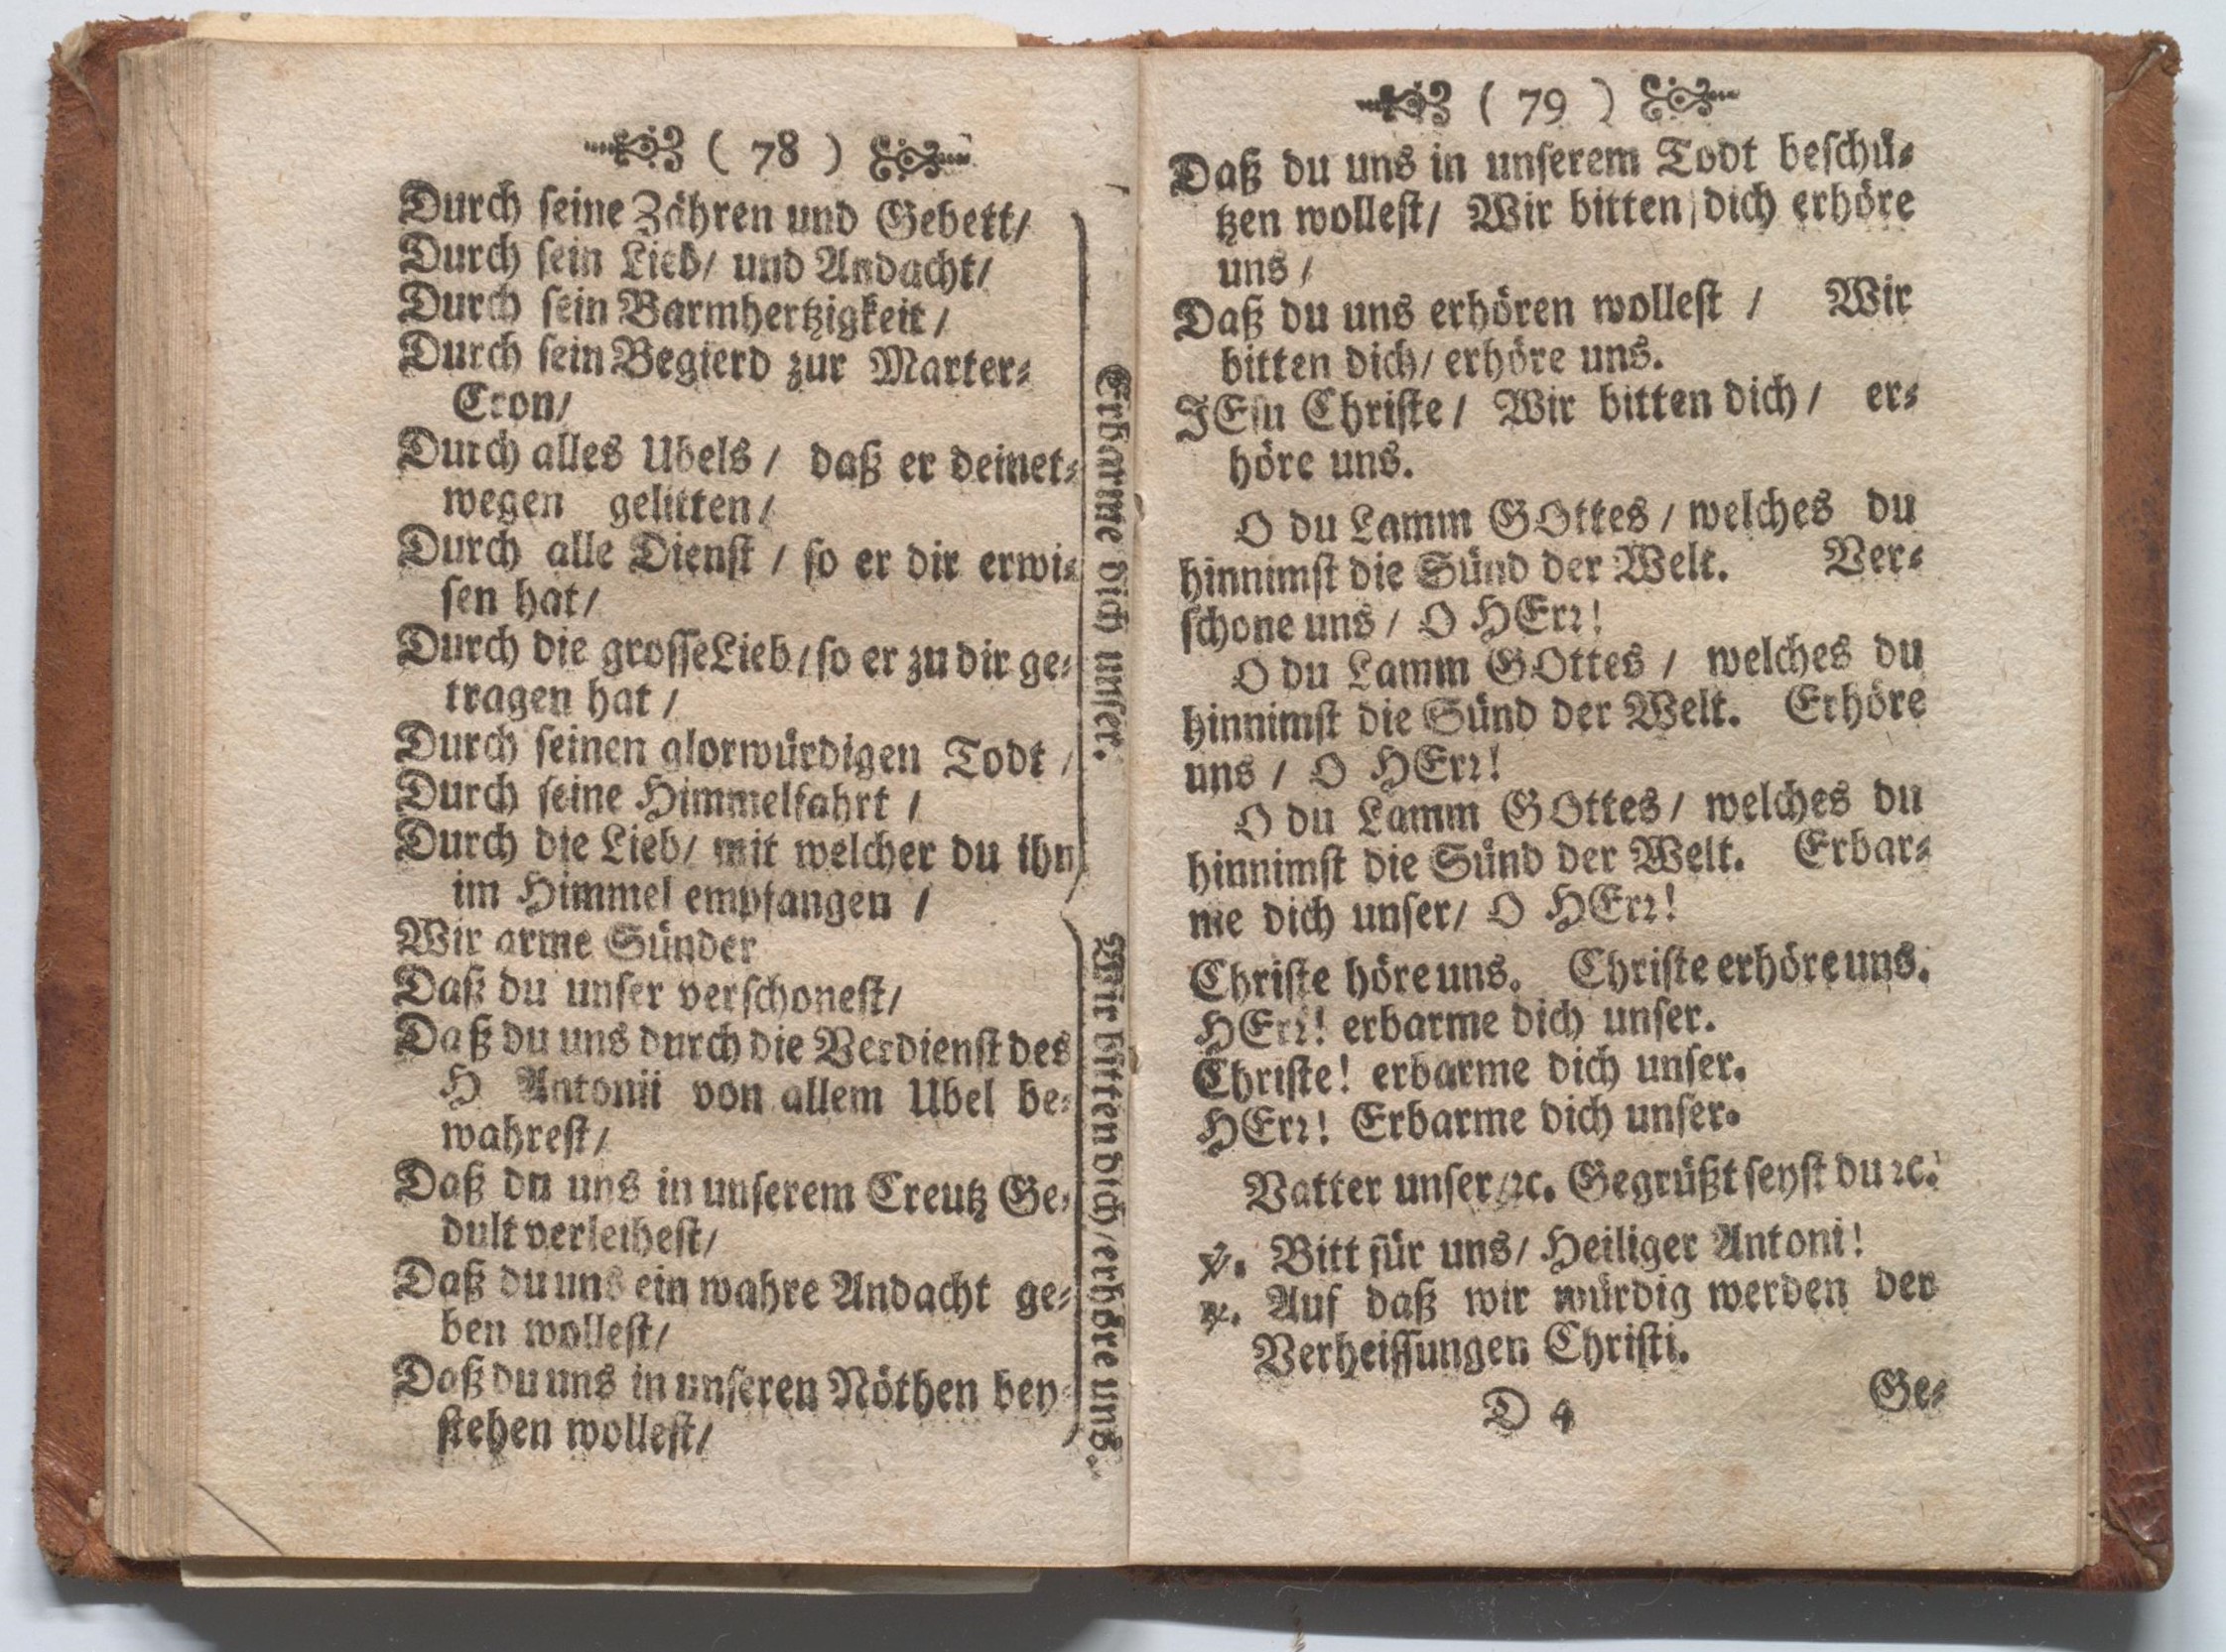 ( 78 )
Durch seine Zähren und Gebett/
Durch sein Lieb/ und Andacht/
Durch sein Barmhertzigkeit/
Durch sein Begierd zur Marter-
Cron/
Durch alles Ubels / daß er deinet-
wegen gelitten/
Durch alle Dienst / so er dir erwi-
sen hat/
Durch die grosse Lieb/ so er zu dir ge-
tragen hat /
Durch seinen glorwürdigen Todt /
Durch seine Himmelfahrt /
Durch die Lieb/ mit welcher du ihn
im Himmel empfangen /
Erbarme dich unser.
Wir arme Sünder
Daß du unser verschonest/
Daß du uns durch die Verdienst des
H Antonii von allem Ubel be-
wahrest/
Daß du uns in unserem Creutz Ge-
dult verleihest/
Daß du uns ein wahre Andacht ge-
ben wollest/
Daß du uns in unseren Nöthen bey-
stehen wollest/
Wir bitten dich/ erhöre uns.
( 79 )
Daß du uns in unserem Todt beschü-
tzen wollest/ Wir bitten dich erhöre
uns /
Daß du uns erhören wollest / Wir
bitten dich/ erhöre uns.
JEsu Christe / Wir bitten dich / er-
höre uns.
O du Lamm GOttes / welches du
hinnimst die Sünd der Welt. Ver-
schone uns / O HErr!
O du Lamm GOttes / welches du
hinnimst die Sünd der Welt. Erhöre
uns / O HErr!
O du Lamm GOttes / welches du
hinnimst die Sünd der Welt. Erbar-
me dich unser/ O HErr!
Christe höre uns. Christe erhöre uns.
HErr! erbarme dich unser.
Christe! erbarme dich unser.
HErr! Erbarme dich unser.
Vatter unser/ ꝛc. Gegrüßt seyst du ꝛc.
℣. Bitt für uns/ Heiliger Antoni!
℟. Auf daß wir würdig werden der
Verheissungen Christi.
D 4
Ge-